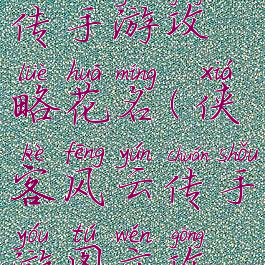 传手游攻
lüè huā míng xiá
略花名(侠
kè fēng yún chuán shǒu
客风云传手
yóu tú wén gōng
游图文攻